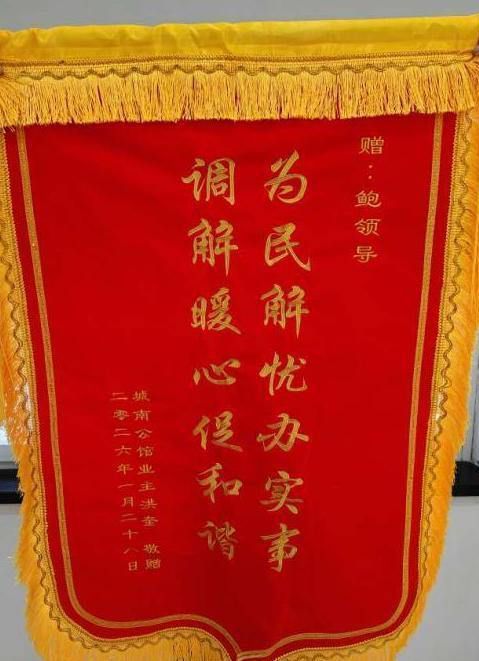 赠：鲍领导
为民解忧办实事
调解暖心促和谐
城南公馆业主洪奎 敬赠
二零二六年一月二十八日